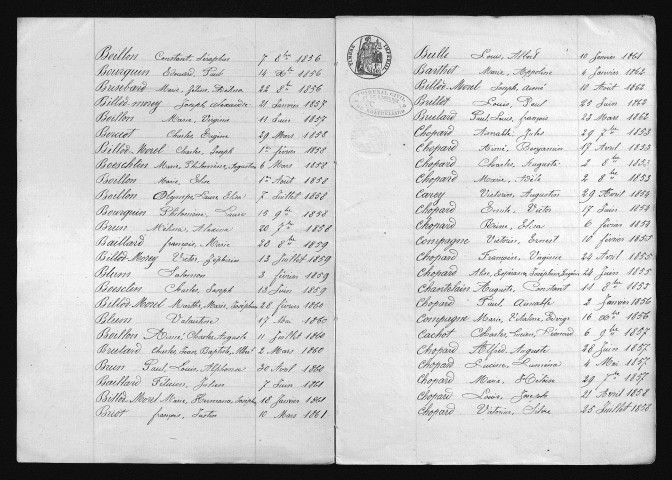 Boillon Constant, Séraphin 7 8bre 1856
Bourquin Edouard, Paul 14 Xbre 1856
Busebard Marie, Julie 22 8bre 1856
Billod-morey Joseph, Alexandre 21 Janvier 1857
Boillon Marie, Virginie 11 Juin 1857
Borcot Charles, Eugène 29 Mars 1858
Billod-Morel Charles, Joseph 1er février 1858
Boeschlen Marie, Philomène, Augustine 6 Mars 1858
Boillon Marie, Elise 1er Août 1858
Boillon Olympe, Laure, Elisa 7 Juillet 1858
Bourquin Philomène, Laure 13 9bre 1858
Brun Mélina, Alexina 20 7bre 1858
Baillard françois, Marie 20 8bre 1859
Billod-Morey Victor, Zéphirin 13 Juillet 1859
Blum Salomon 3 février 1859
Beschlen Charles, Joseph 13 Juin 1859
Billod-Morel Marthe, Marie, Joséphine 28 février 1860
Blum Valentine 17 Mai 1860
Boillon Aimé, Charles, Auguste 11 Juillet 1860
Brulard Charles, Jean Baptiste, Albert 2 Mars 1860
Brun Paul, Louis, Alphonse 30 Avril 1860
Baillard Félicien, Julien 7 Juin 1861
Billod-Morel Marie, Hermance, Joseph 18 Janvier 1861
Briot françois, Justin 10 Mars 1861
Bulle Louis, Albert 10 Janvier 1861
Barthet Marie, Appoline 4 Janvier 1862
Billod-Morel Joseph, aimé 10 Août 1862
Brillot Louis, Paul 23 Juin 1862
Brulard Paul, Louis, françois 23 Mars 1862
Chopard Annable, Jules 29 7bre 1853
Chopard Aimé, Benjamin 17 Avril 1853
Chopard Charles, Auguste 2 8bre 1853
Chopard Marie, Adèle 2 8bre 1853
Carey Victorin, Augustin 29 Août 1854
Chopard Emile, Victor 17 Juin 1854
Chopard Elisa 6 février 1854
Compagne Victorin, Ernest 10 février 1855
Chopard François, Virginie 24 Avril 1855
Chopard Joséphine 24 Juin 1855
Chantelain Auguste, Constant 11 8bre 1853
Chopard Paul 2 Janvier 1856
Compagne Marie, Edwige 16 Xbre 1856
Cachot Charles, Lucien 6 9bre 1857
Chopard Alfred, Auguste 26 Juin 1857
Chopard Lucine 4 Mai 1857
Chopard Marie 29 7bre 1857
Chopard Louis, Joseph 21 Avril 1858
Chopard Victorine 25 Juillet 1858